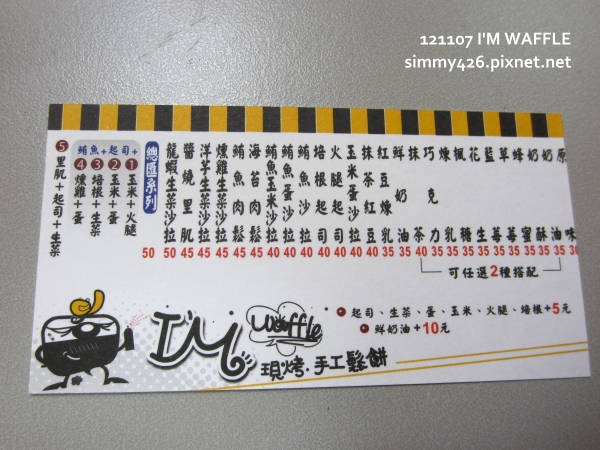 121107 I'M WAFFLE
simmy426.pixnet.net
原味
奶油 35
奶酥 35
蜂蜜 35
草莓 35
藍莓 35
花生 35
楓糖 35
煉乳 35
巧克力 35
抹茶 40
鮮奶油 35
抹茶紅豆 40
玉米蛋沙拉 40
火腿起司 40
培根起司 40
鮪魚沙拉 40
鮪魚蛋沙拉 40
鮪魚玉米沙拉 40
海苔肉鬆 40
鮪魚肉鬆 45
燻雞生菜沙拉 45
洋芋生菜沙拉 45
醬燒里肌 45
龍蝦生菜沙拉 50
總匯系列 50
鮪魚+起司+
❶玉米+火腿
❷玉米+蛋
❸培根+生菜
❹燻雞+蛋
❺里肌+起司+生菜
可任選2種搭配
起司、生菜、蛋、玉米、火腿、培根+5元
鮮奶油+10元
I'M waffle
現烤·手工鬆餅